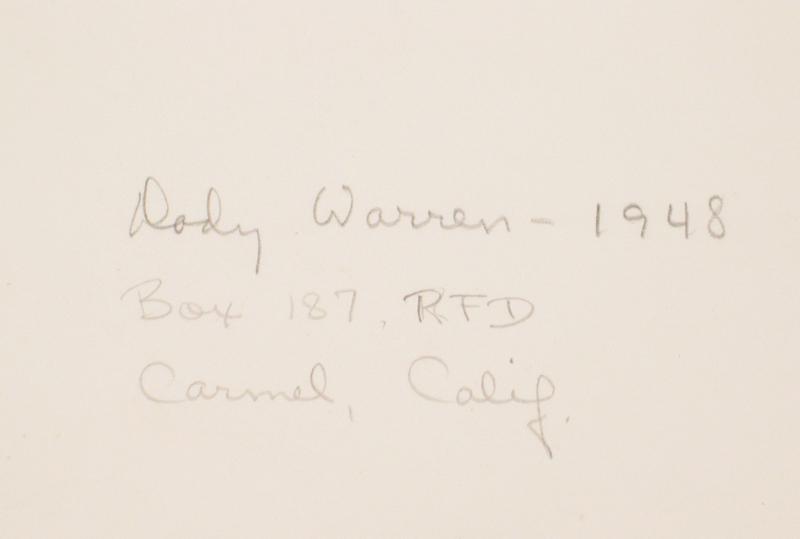 Dody Warren - 1948
Box 187, RFD
Carmel, Calif.